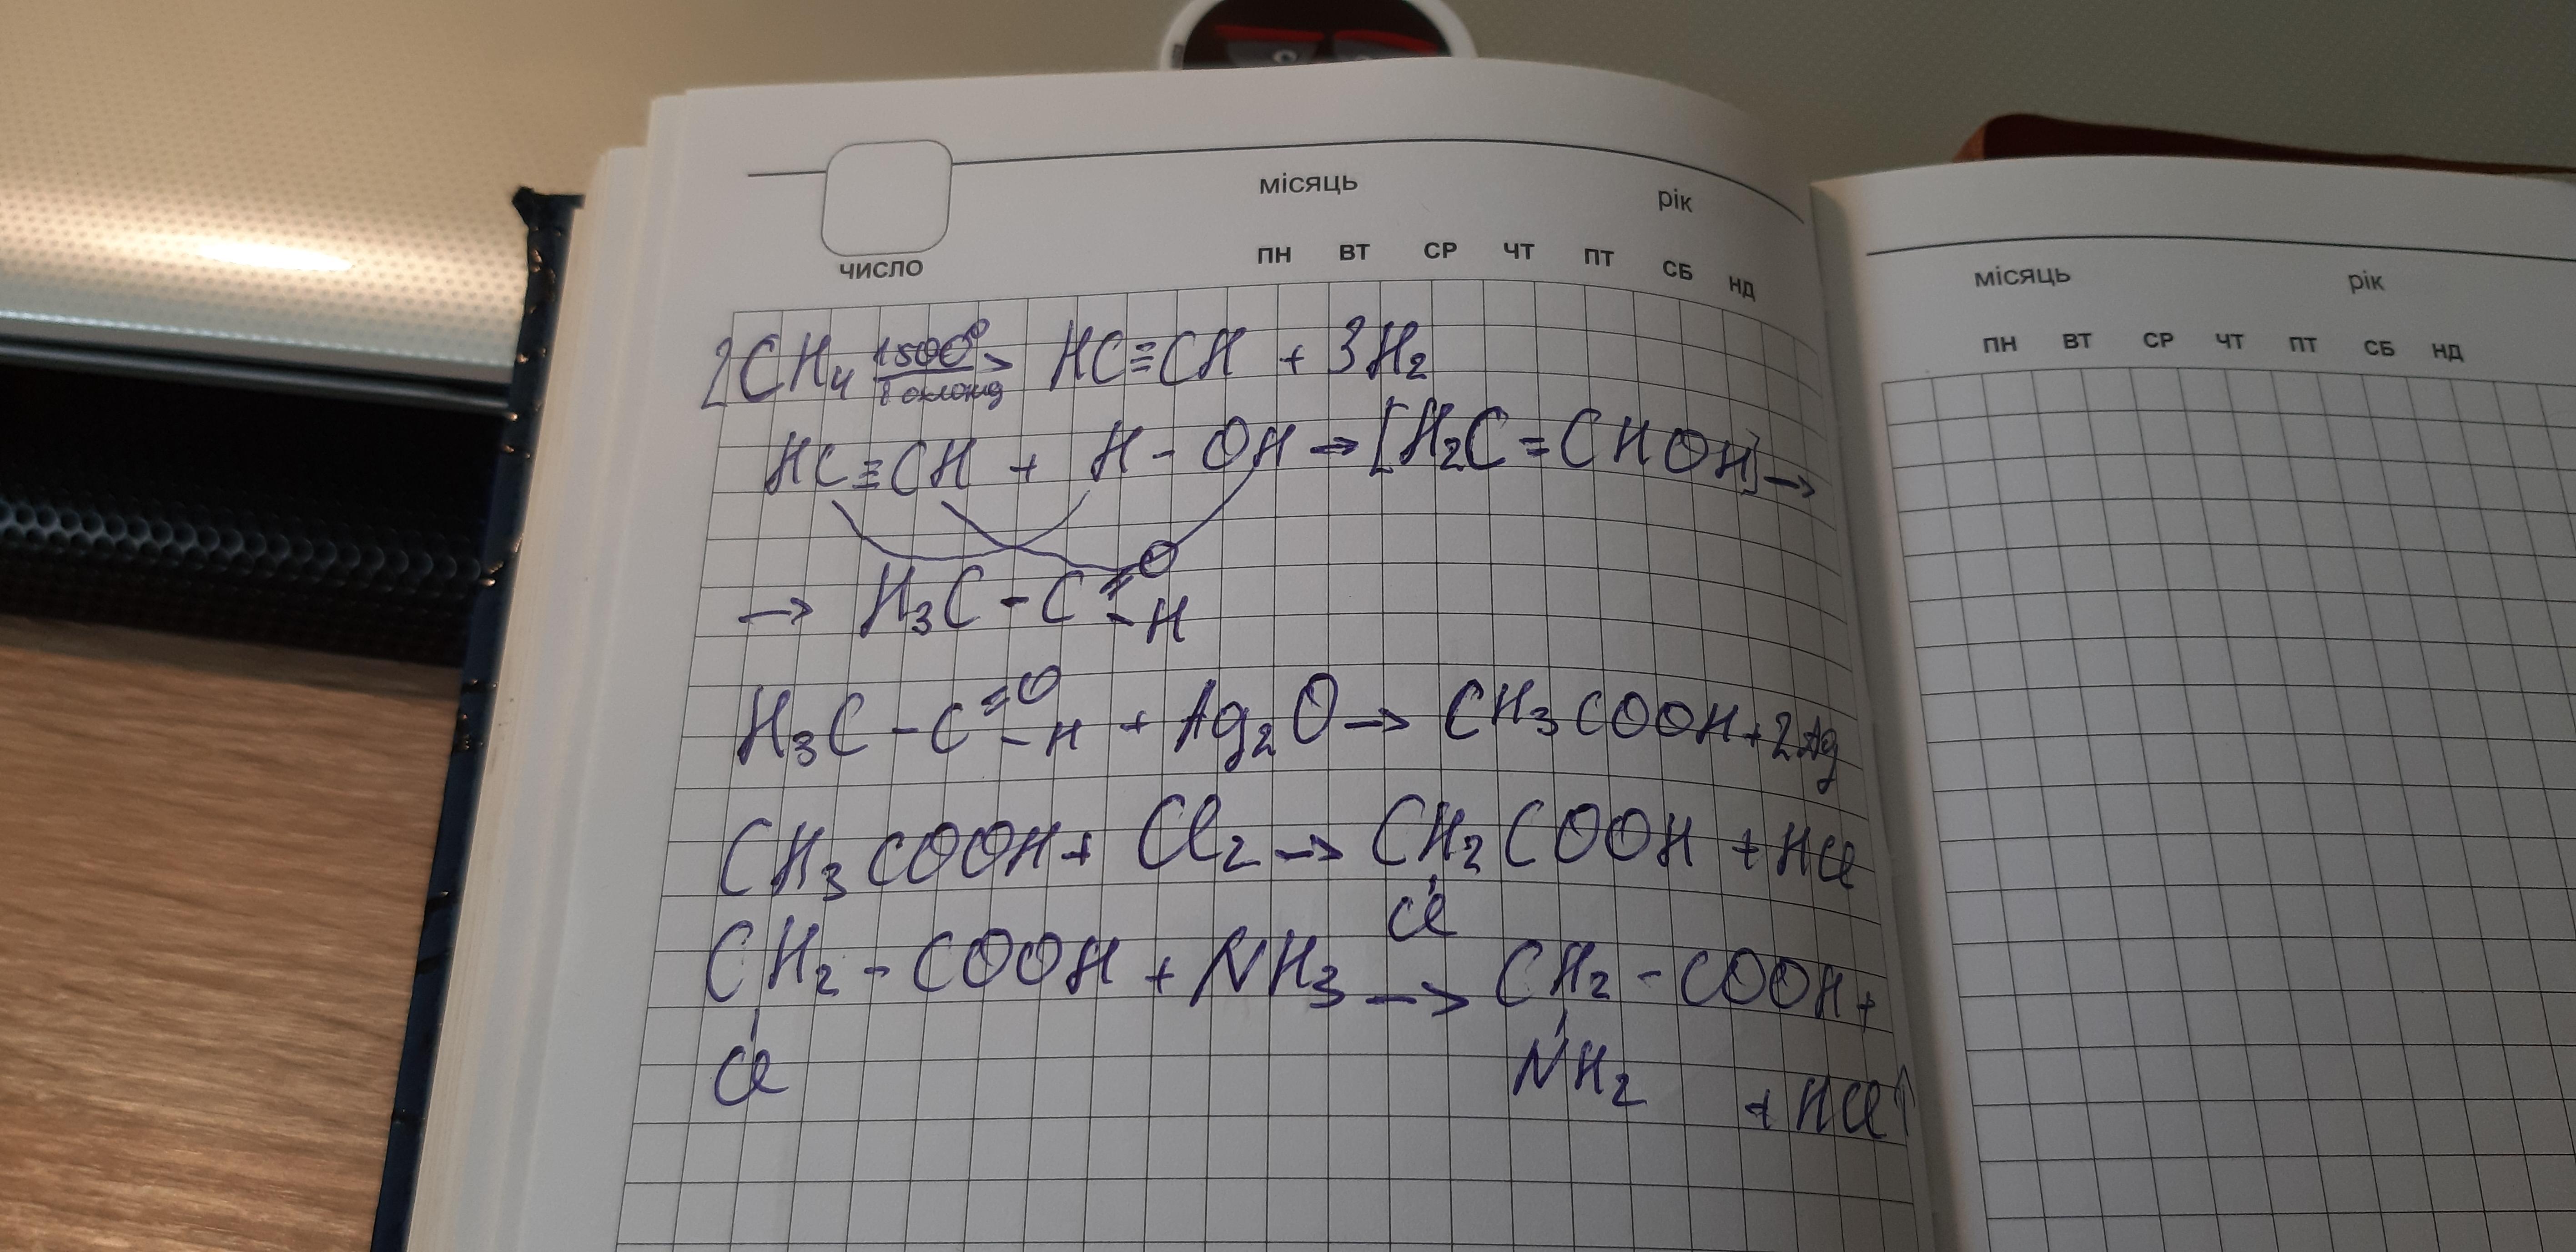 місяць рік
ПН ВТ СР ЧТ ПТ СБ НД
число
2CH₄ 1500° → HC≡CH + 3H₂
HC≡CH + H-OH → [H₂C=CHOH] →
→ H₃C-C=O
-H
H₃C-C=O-H + Ag₂O → CH₃COOH + 2Ag
CH₃COOH + Cl₂ → CH₂COOH + HCl
Cl
CH₂-COOH + NH₃ → CH₂-COOH +
Cl NH₂ + HCl↑
місяць рік
ПН ВТ СР ЧТ ПТ СБ НД